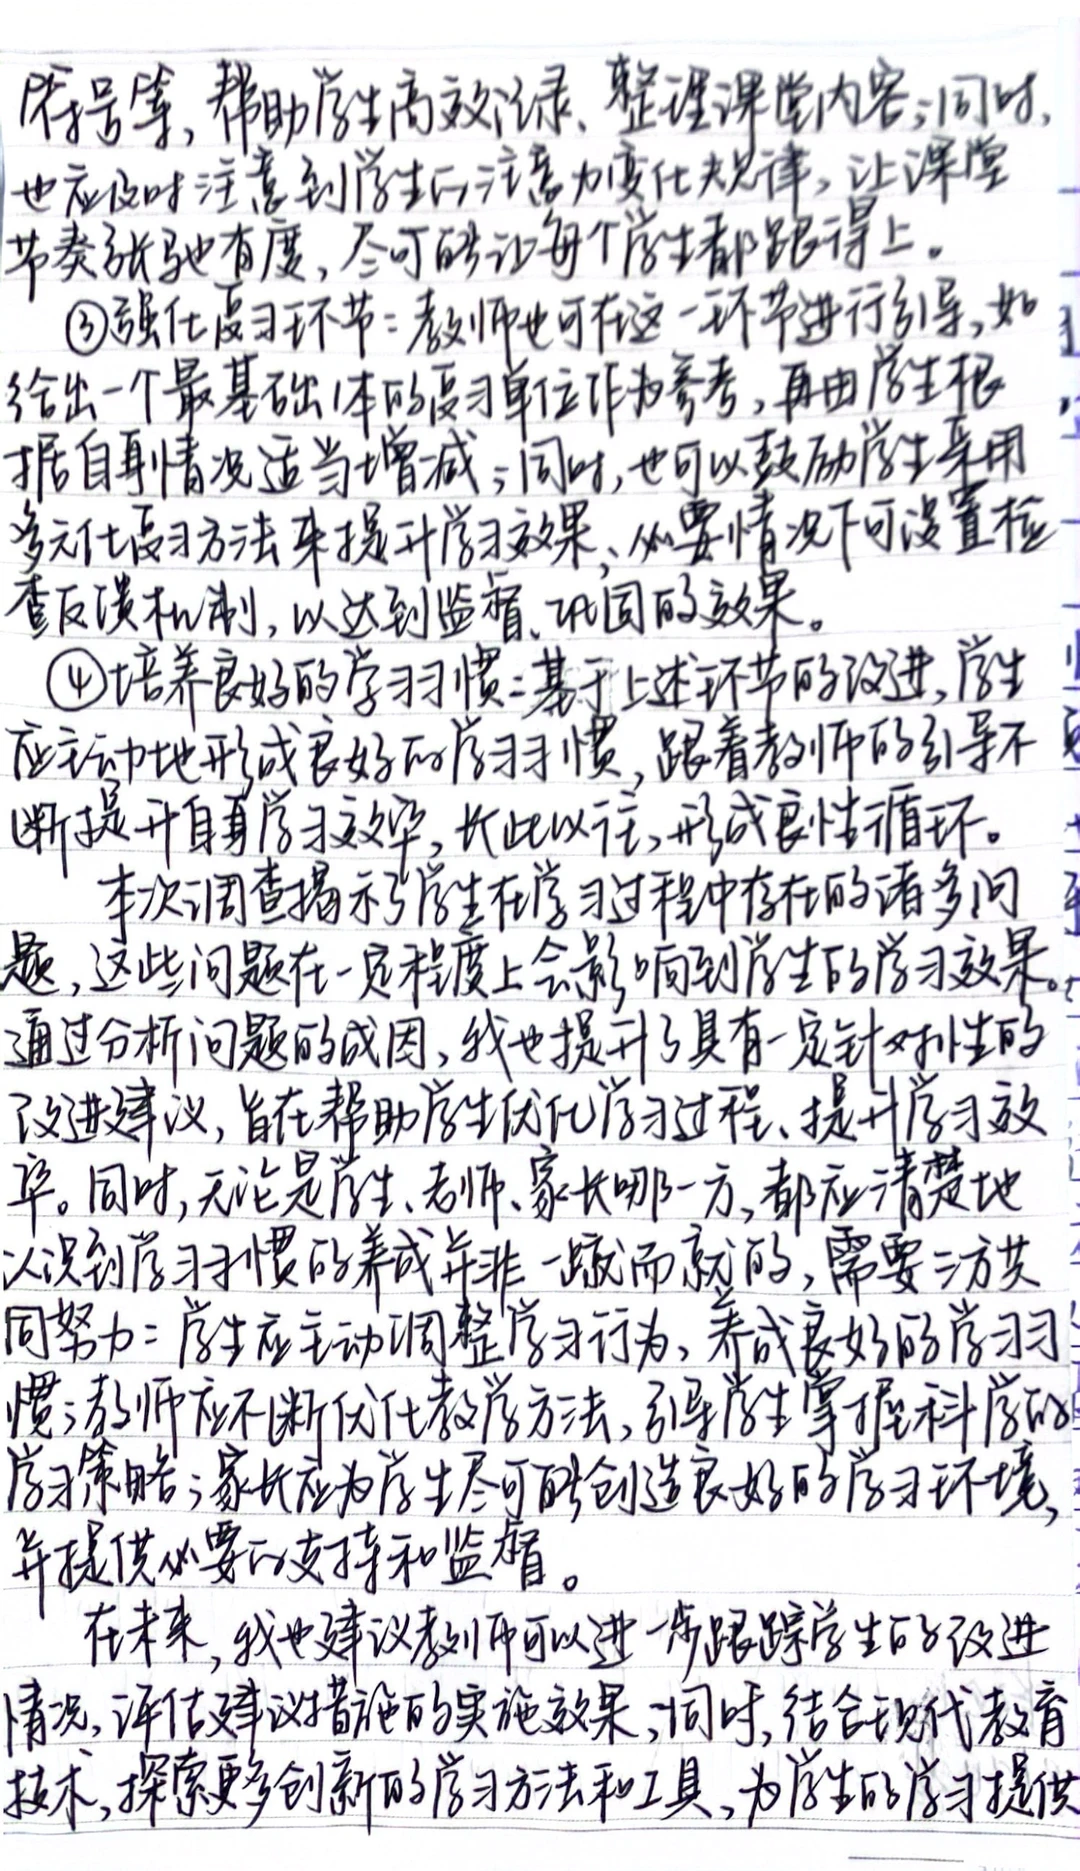 符号等，帮助学生高效记录、整理课堂内容；同时，
也应及时注意到学生的注意力变化规律，让课堂
节奏张弛有度，尽可能让每个学生都跟得上。
③强化复习环节：教师也可在这一环节进行引导，如
给出一个最基础1本的复习单位作为参考，再由学生根
据自身情况适当增减；同时，也可以鼓励学生采用
多元化复习方法来提升学习效果，必要情况下可设置检
查反馈机制，以达到监督、巩固的效果。
④培养良好的学习习惯：基于上述环节的改进，学生
应主动地形成良好的学习习惯，跟着教师的引导不
断提升自身学习效率，长此以往，形成良性循环。
本次调查揭示了学生在学习过程中存在的诸多问
题，这些问题在一定程度上会影响到学生的学习效果。
通过分析问题的成因，我也提升了具有一定针对性的
改进建议，旨在帮助学生优化学习过程、提升学习效
率。同时，无论是学生、老师、家长哪一方，都应清楚地
认识到学习习惯的养成并非一蹴而就的，需要三方共
同努力：学生应主动调整学习行为，养成良好的学习习
惯；教师应不断优化教学方法，引导学生掌握科学的
学习策略；家长应为学生尽可能创造良好的学习环境，
并提供必要的支持和监督。
在未来，我也建议教师可以进一步跟踪学生的改进
情况，评估建议措施的实施效果；同时，结合现代教育
技术，探索更多创新的学习方法和工具，为学生的学习提供